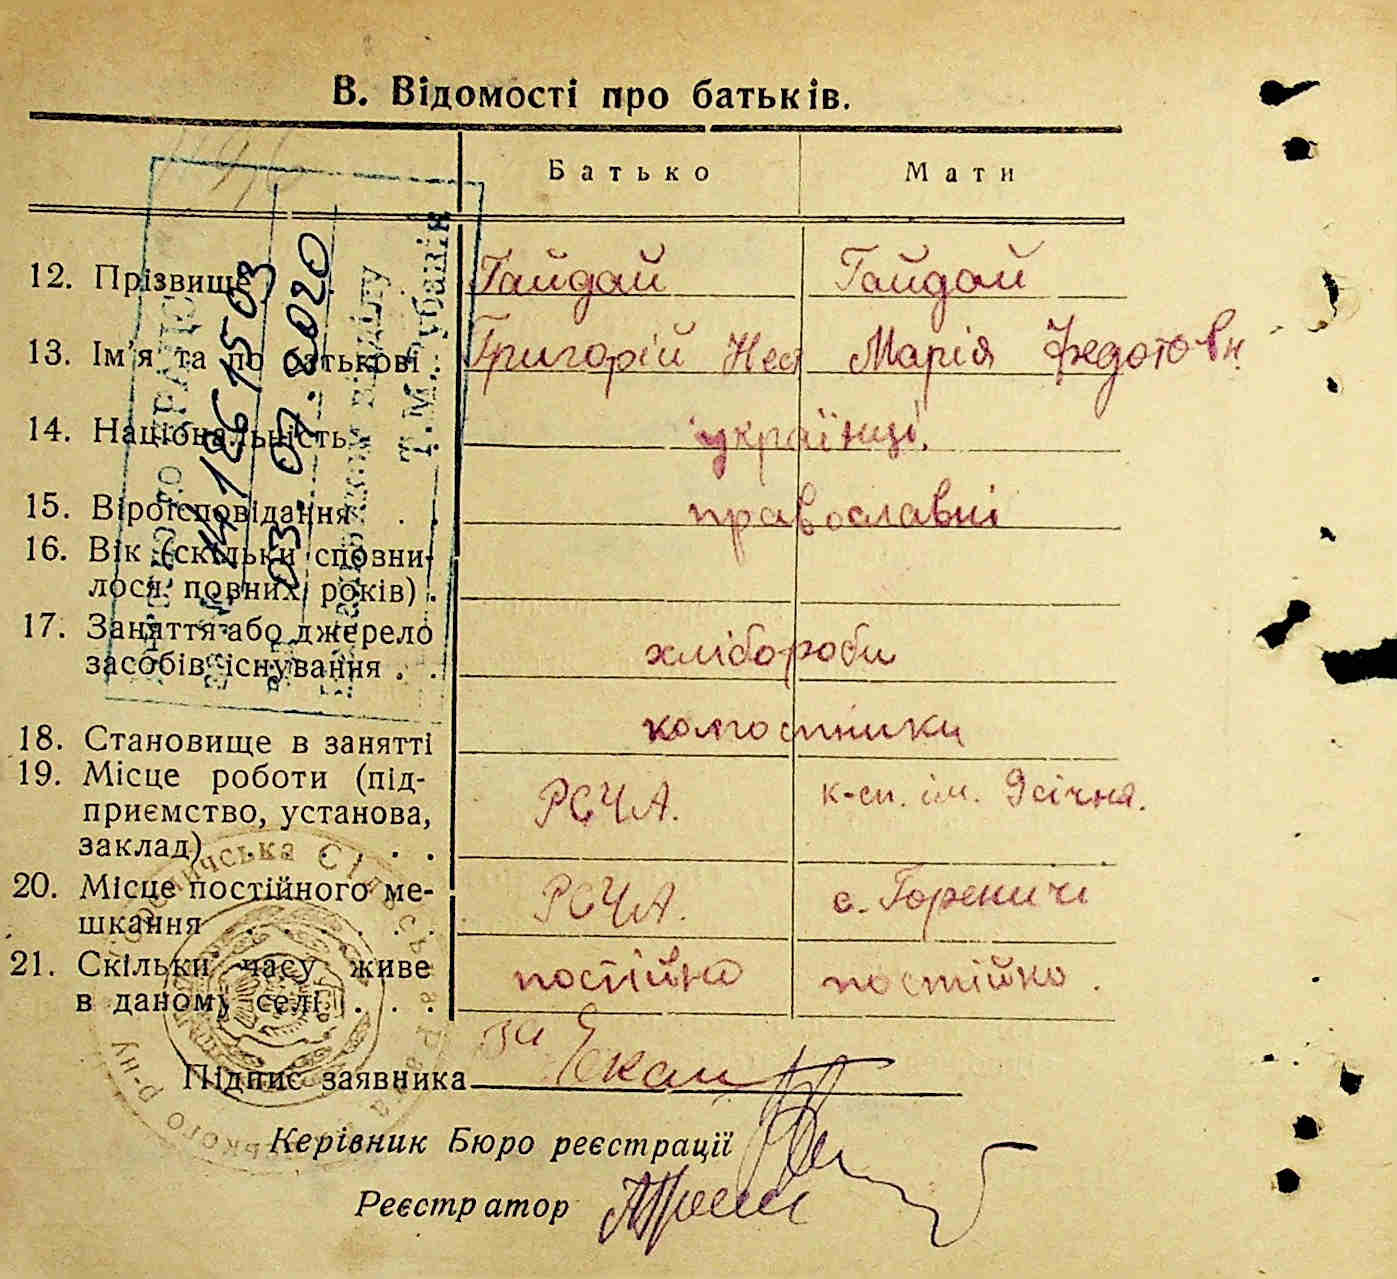 В. Відомості про батьків.
Батько Мати
12. Прізвище Гайдай Гайдай
13. Ім'я та по батькові Григорій Нес Марія Федотовн.
14. Національність українці.
15. Віроісповідання . . православні
16. Вік (скільки сповни-
лося повних років) .
17. Заняття або джерело
засобів існування . . хлібороби
18. Становище в занятті колгоспники
19. Місце роботи (під-
приємство, установа,
заклад) . . . РСЧА. к-сп. ім. 9 січня.
20. Місце постійного ме-
шкання . . . . РСЧА. с. Гореничі
21. Скільки часу живе
в даному селі . . . постійно постійно.
Підпис заявника за
Керівник Бюро реєстрації
Реєстратор
РАЦС
4126 1503
03.07.2020
відділу
Т.М.